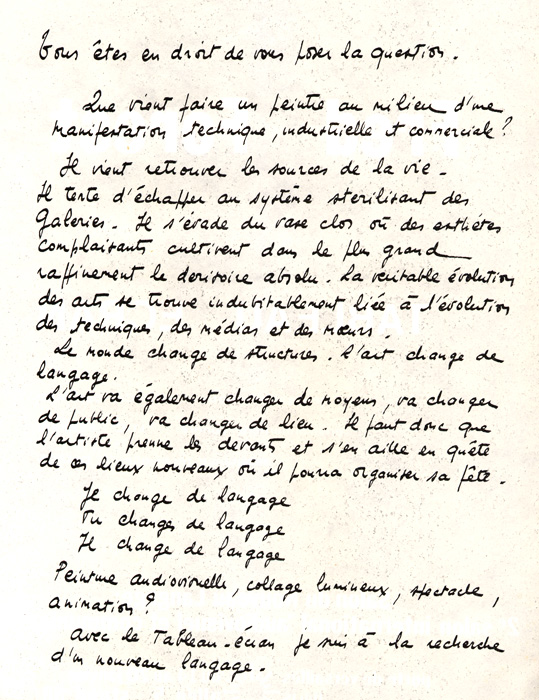 Vous êtes en droit de vous poser la question.
Que vient faire un peintre au milieu d'une
manifestation technique, industrielle et commerciale ?
Il vient retrouver les sources de la vie.
Il tente d'échapper au système sterilisant des
Galeries. Il s'évade du vase clos où des esthètes
complaisants cultivent dans le plus grand
raffinement le derisoire absolu. La veritable évolution
des arts se trouve indubitablement liée à l'évolution
des techniques, des médias et des mœurs.
Le monde change de structures. L'art change de
langage.
L'art va également changer de moyens, va changer
de public, va changer de lieu. Il faut donc que
l'artiste prenne les devants et s'en aille en quête
de ces lieux nouveaux où il pourra organiser sa fête.
Je change de langage
Tu changes de langage
Il change de langage
Peinture audiovisuelle, collage lumineux, spectacle,
animation ?
Avec le Tableau-écran je suis à la recherche
d'un nouveau langage.